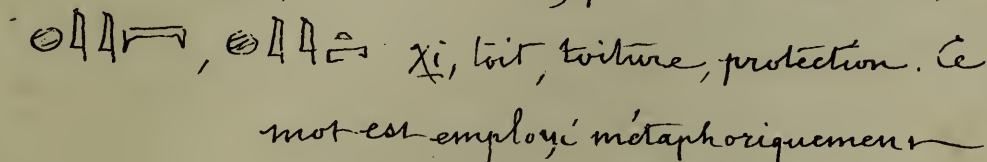 𓐍𓇋𓇋𓇯, 𓐍𓇋𓇋𓏏𓉐 χi, toit, toiture, protection. Ce
mot est employé métaphoriquement